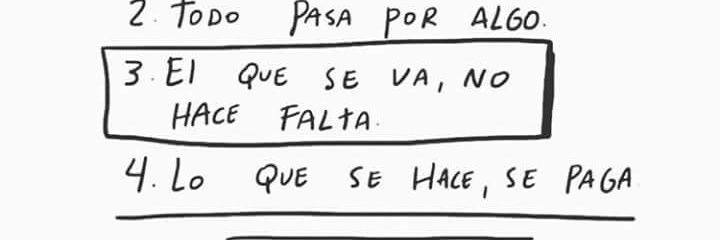 2. TODO PASA POR ALGO.
3. El QUE SE VA, NO
HACE FALTA.
4. Lo QUE SE HACE, SE PAGA